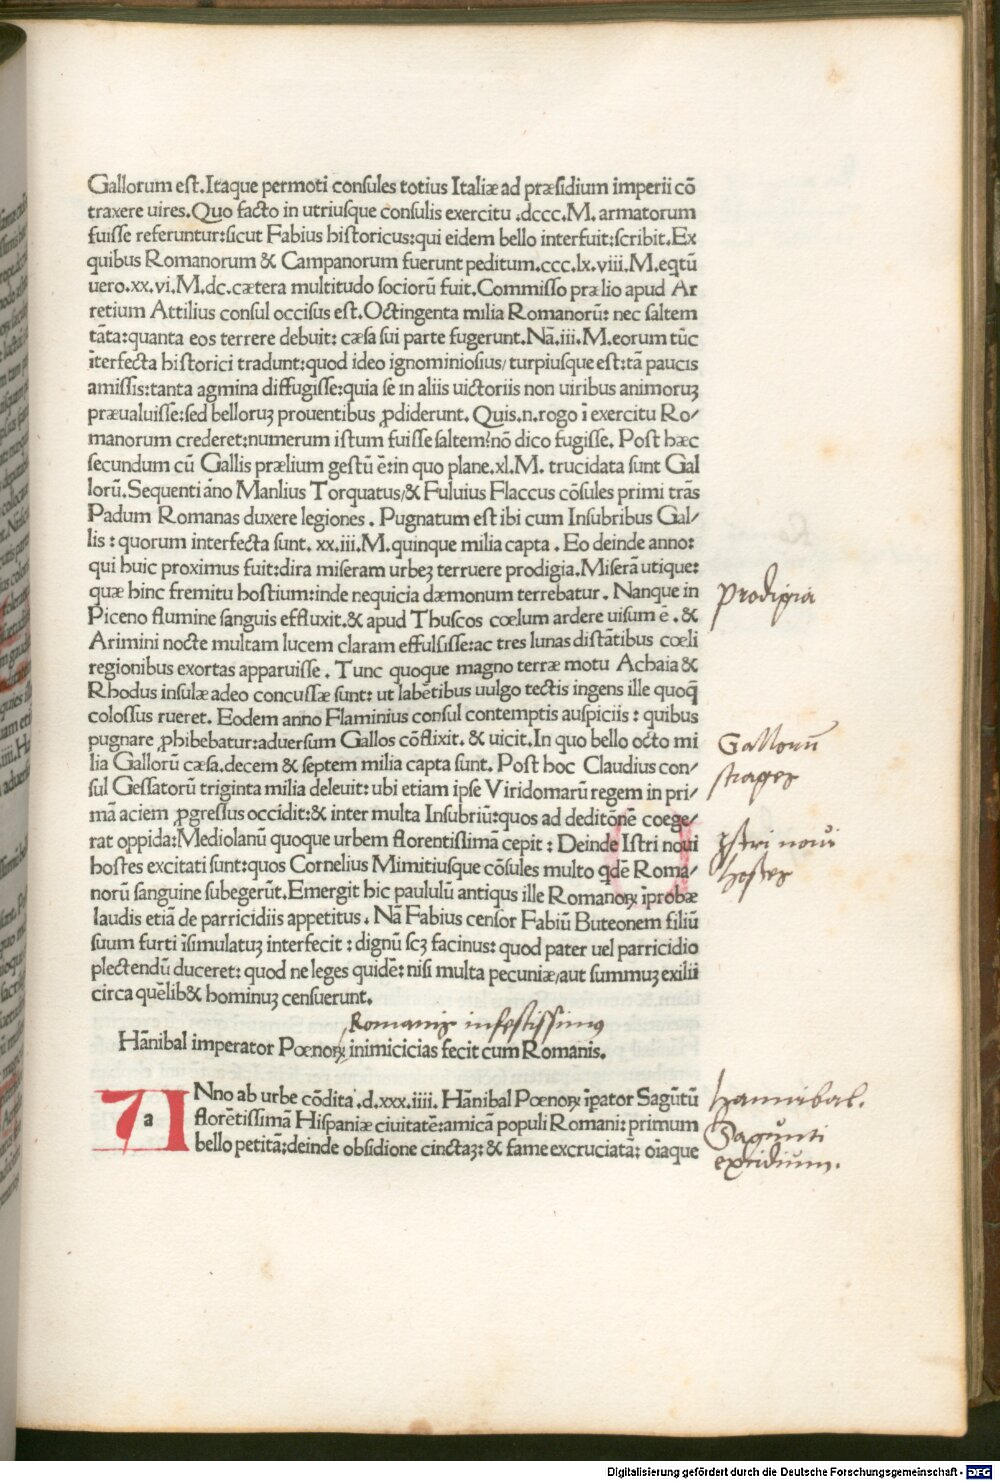 Gallorum est.Itaque permoti consules totius Italiæ ad præsidium imperii cō
traxere uires.Quo facto in utriusque consulis exercitu .dccc.M. armatorum
fuisse referuntur:sicut Fabius historicus:qui eidem bello interfuit:scribit.Ex
quibus Romanorum & Campanorum fuerunt peditum.ccc.lx.viii.M.eqtū
uero.xx.vi.M.dc.cætera multitudo sociorū fuit.Commisso prælio apud Ar
retium Attilius consul occisus est.Octingenta milia Romanorū: nec saltem
tāta:quanta eos terrere debuit: cæsa sui parte fugerunt.Nā.iii.M.eorum tūc
īterfecta historici tradunt:quod ideo ignominiosius/turpiusque est:tā paucis
amissis:tanta agmina diffugisse:quia se in aliis uictoriis non uiribus animoruꝫ
præualuisse:sed belloruꝫ prouentibus ꝓdiderunt. Quis.n.rogo ī exercitu Ro/
manorum crederet:numerum istum fuisse saltem?nō dico fugisse. Post hæc
secundum cū Gallis prælium gestū ē:in quo plane.xl.M. trucidata sunt Gal
lorū.Sequenti āno Manlius Torquatus/& Fuluius Flaccus cōsules primi trās
Padum Romanas duxere legiones. Pugnatum est ibi cum Insubribus Gal/
lis: quorum interfecta sunt. xx.iii.M.quinque milia capta. Eo deinde anno:
qui huic proximus fuit:dira miseram urbeꝫ terruere prodigia.Miserā utique:
quæ hinc fremitu hostium:inde nequicia dæmonum terrebatur. Nanque in
Piceno flumine sanguis effluxit.& apud Thuscos cœlum ardere uisum ē. &
Arimini nocte multam lucem claram effulsisse:ac tres lunas distātibus cœli
regionibus exortas apparuisse. Tunc quoque magno terræ motu Achaia &
Rhodus insulæ adeo concussæ sunt: ut labētibus uulgo tectis ingens ille quoq̄
colossus rueret. Eodem anno Flaminius consul contemptis auspiciis: quibus
pugnare ꝓhibebatur:aduersum Gallos cōflixit. & uicit.In quo bello octo mi
lia Gallorū cæsa.decem & septem milia capta sunt. Post hoc Claudius con/
sul Gessatorū triginta milia deleuit: ubi etiam ipse Viridomarū regem in pri/
mā aciem ꝓgressus occidit:& inter multa Insubriū:quos ad deditōnē coege/
rat oppida:Mediolanū quoque urbem florentissimā cepit: Deinde Istri noui
hostes excitati sunt:quos Cornelius Mimitiusque cōsules multo qdē Roma/
norū sanguine subegerūt.Emergit hic paululū antiqus ille Romanoꝝ īprobæ
laudis etiā de parricidiis appetitus. Nā Fabius censor Fabiū Buteonem filiū
suum furti īsimulatuꝫ interfecit: dignū scꝫ facinus: quod pater uel parricidio
plectendū duceret: quod ne leges quidē: nisi multa pecuniæ/aut summuꝫ exilii
circa quēlib& hominuꝫ censuerunt.
Romanis infestissimus
Hānibal imperator Pœnoꝝ inimicicias fecit cum Romanis.
a
ANno ab urbe cōdita.d.xxx.iiii. Hānibal Pœnoꝝ īpator Sagūtū
florētissimā Hispaniæ ciuitatē:amicā populi Romani: primum
bello petitā:deinde obsidione cinctaꝫ: & fame excruciatā: oīaque
prodigia
Gallorū
strages
Istri noui
hostes
Hannibal.
Sagunti
excidium.
Digitalisierung gefördert durch die Deutsche Forschungsgemeinschaft - DFG